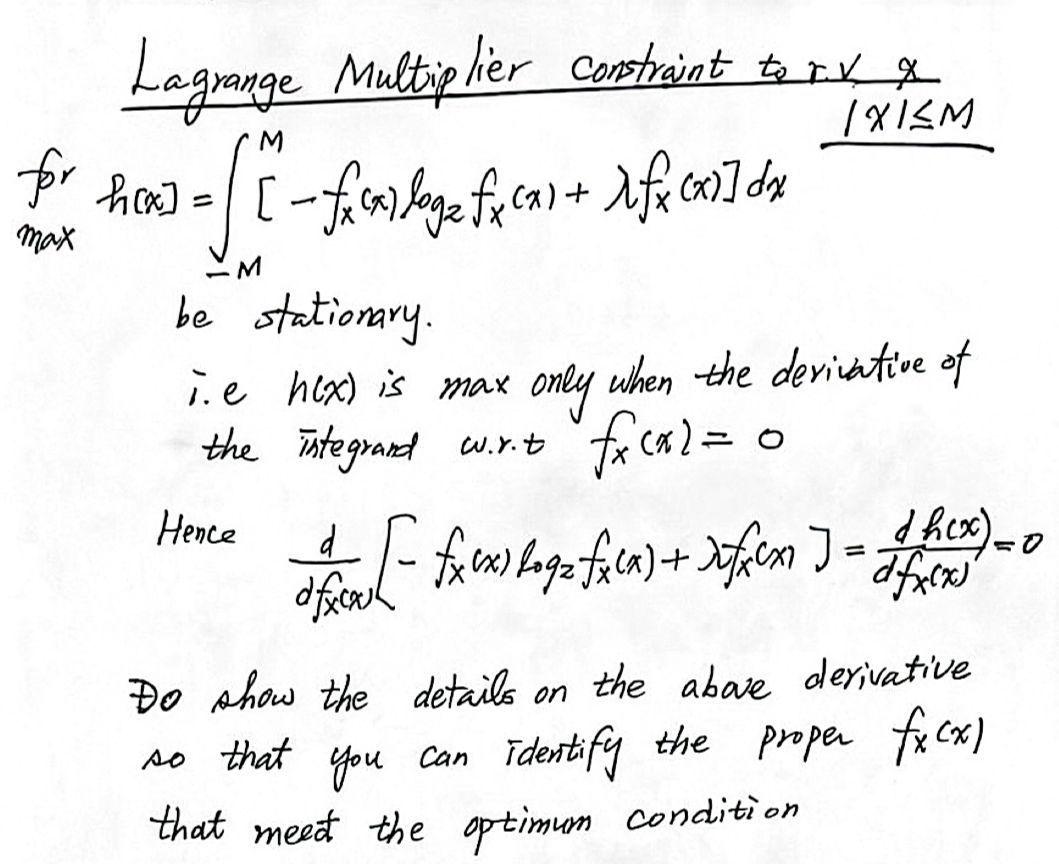 Lagrange Multiplier Constraint to r.v x
|X|≤M
for max h[x] = ∫_{-M}^{M} [ -f_x(x) log_2 f_x(x) + λf_x(x)] dx
be stationary.
i.e h(x) is max only when the derivative of
the integrand w.r.t f_x(x) = 0
Hence d/df_x(x) [ - f_x(x) log_2 f_x(x) + λf_x(x) ] = d h(x)/df_x(x) = 0
Do show the details on the above derivative
so that you can identify the proper f_x(x)
that meet the optimum condition